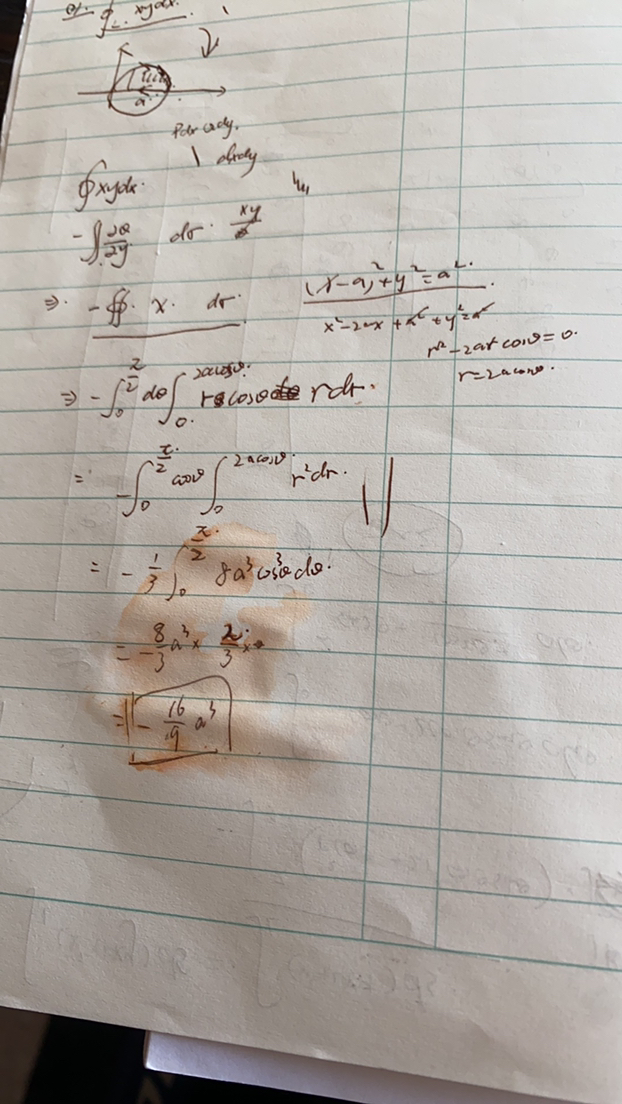 ∮_L xydx.
a
Pdx Qdy.
dxdy
∮xydx.
-∬ ∂Q/∂y dσ. xy
⇒. -∯. x. dσ.
(x-a)²+y²=a².
x²-2ax+a²+y²=a²
r²-2ar cosθ=0.
r=2acosθ.
⇒ -∫₀^{π/2} dθ ∫₀^{2acosθ} r cosθ rdr.
= -∫₀^{π/2} cosθ ∫₀^{2acosθ} r²dr.
= -1/3 ∫₀^{π/2} 8a³cos³θdθ.
= -8/3 a³ × 2/3 ×
= -16/9 a³